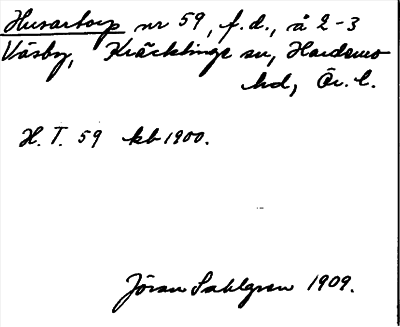 Husartorp nr 59, f.d., å 2-3
Väsby, Kräcklinge sn, Hardemo
hd, Ör. l.
H. T. 59 kb 1900.
Jöran Sahlgren 1909.